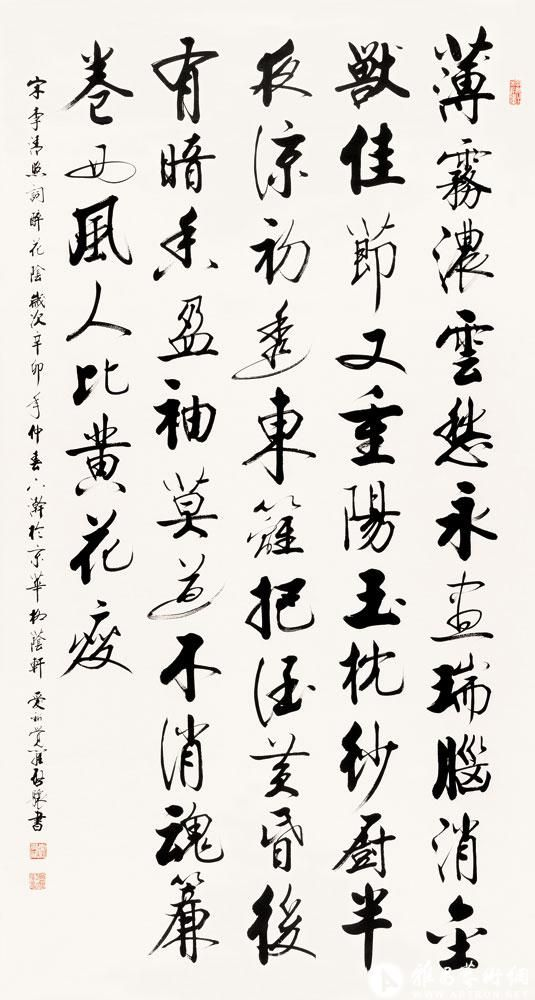 薄霧濃雲愁永晝瑞腦消金
獸佳節又重陽玉枕紗廚半
夜涼初透東籬把酒黃昏後
有暗香盈袖莫道不消魂簾
卷西風人比黃花瘦
宋李清照詞醉花陰歲次辛卯年仲春於京華柳蔭軒愛新覺羅啟驤書
雅昌藝術網
ARTRON.NET